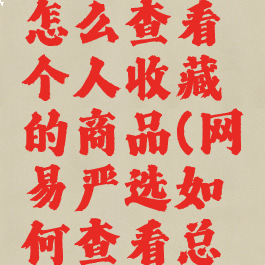 怎么查看
个人收藏
的商品(网
易严选如
何查看总